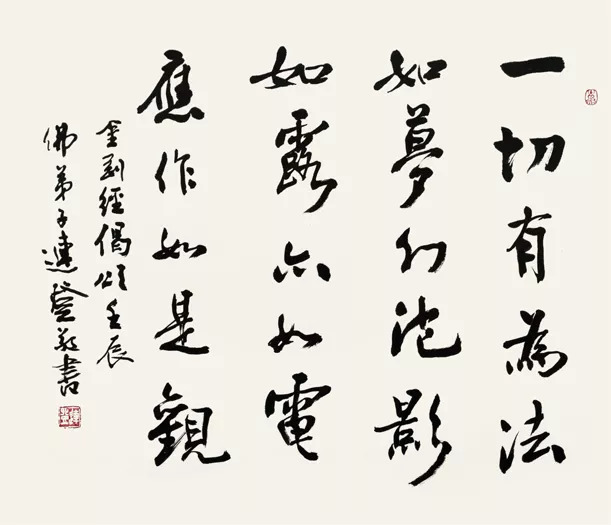 一切有為法
如夢幻泡影
如露亦如電
應作如是觀
金剛經偈頌壬辰
佛弟子連登敬書